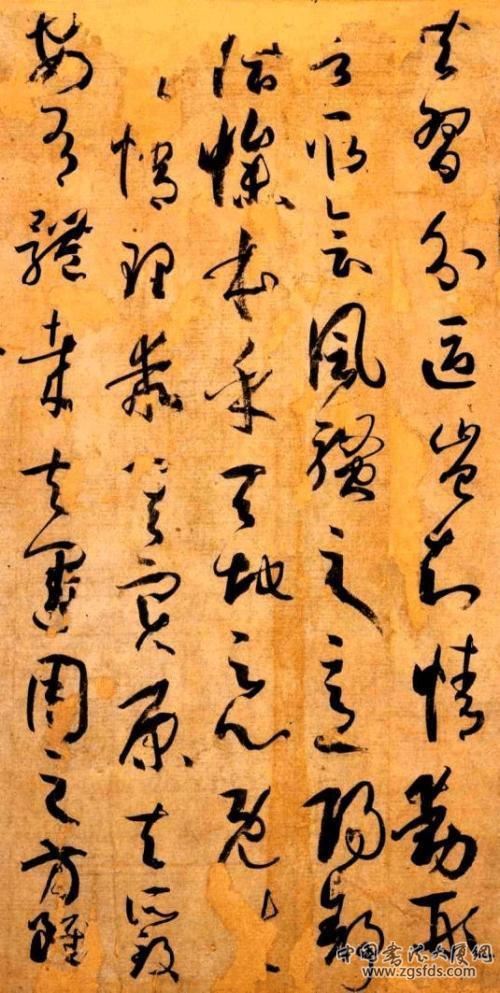 共習分區豈知情動形
言取會風騷之意陽舒
陰慘本乎天地之心既
情理乖其實原夫所致
安有體哉夫運用之方雖
中国書法大厦網
www.zgsfds.com